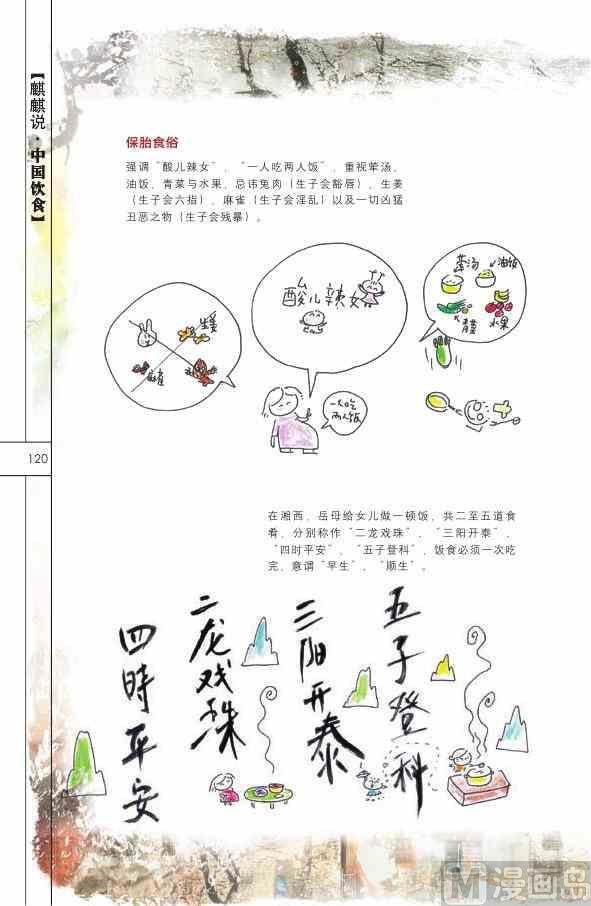 【麒麟说·中国饮食】
120
保胎食俗
强调“酸儿辣女”、“一人吃两人饭”，重视荤汤、
油饭、青菜与水果，忌讳兔肉（生子会豁唇）、生姜
（生子会六指）、麻雀（生子会淫乱）以及一切凶猛
丑恶之物（生子会残暴）。
生姜
麻雀
酸儿辣女
荤汤
油饭
青菜
水果
一人吃
两人饭
在湘西，岳母给女儿做一顿饭，共二至五道食
肴，分别称作“二龙戏珠”、“三阳开泰”、
“四时平安”、“五子登科”，饭食必须一次吃
完，意谓“早生”、“顺生”。
五子登科
三阳开泰
二龙戏珠
四時平安
M 漫画岛